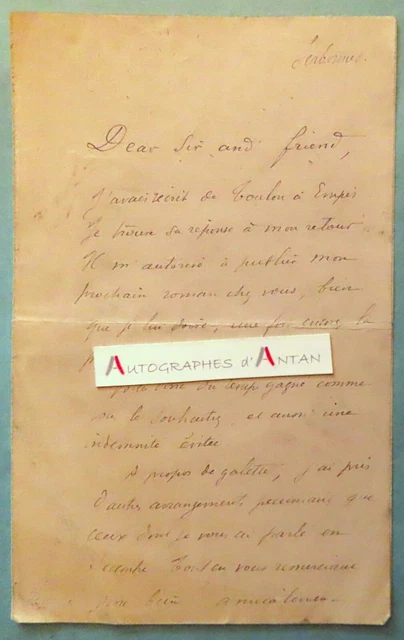 Dear Sir and friend,
J'avais écrit de Toulon à
Je trouve sa réponse à mon retour
Il m'autorise à publier mon
prochain roman chez vous, bien
que je lui doive, une fois encore, la
AUTOGRAPHES d'ANTAN
du temps gagné comme
vous le souhaitez et aussi une
indemnité évitée
A propos de galette, j'ai pris
d'autres arrangements pécuniaires que
ceux dont je vous ai parlé en
Tout en vous remerciant
bien